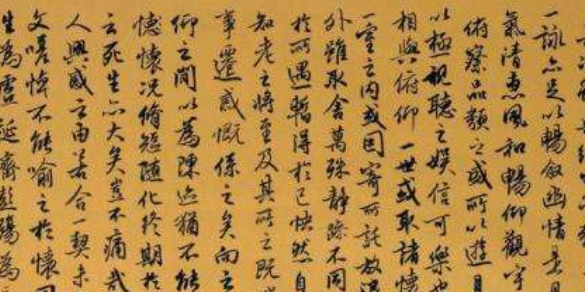 一詠亦足以暢叙幽情是日
氣清惠風和暢仰觀宇
俯察品類之盛所以遊目
以極視聽之娛信可樂也
相與俯仰一世或取諸懷
一室之内或因寄所託放浪
外雖取舍萬殊静躁不同
於所遇暫得於己快然自
知老之將至及其所之既
事遷感慨係之矣向之
仰之間以為陳迹猶不能
懷况脩短隨化終期於
云死生亦大矣豈不痛哉
人興感之由若合一契未
文嗟悼不能喻之於懷固
生為虚誕齊彭殤為